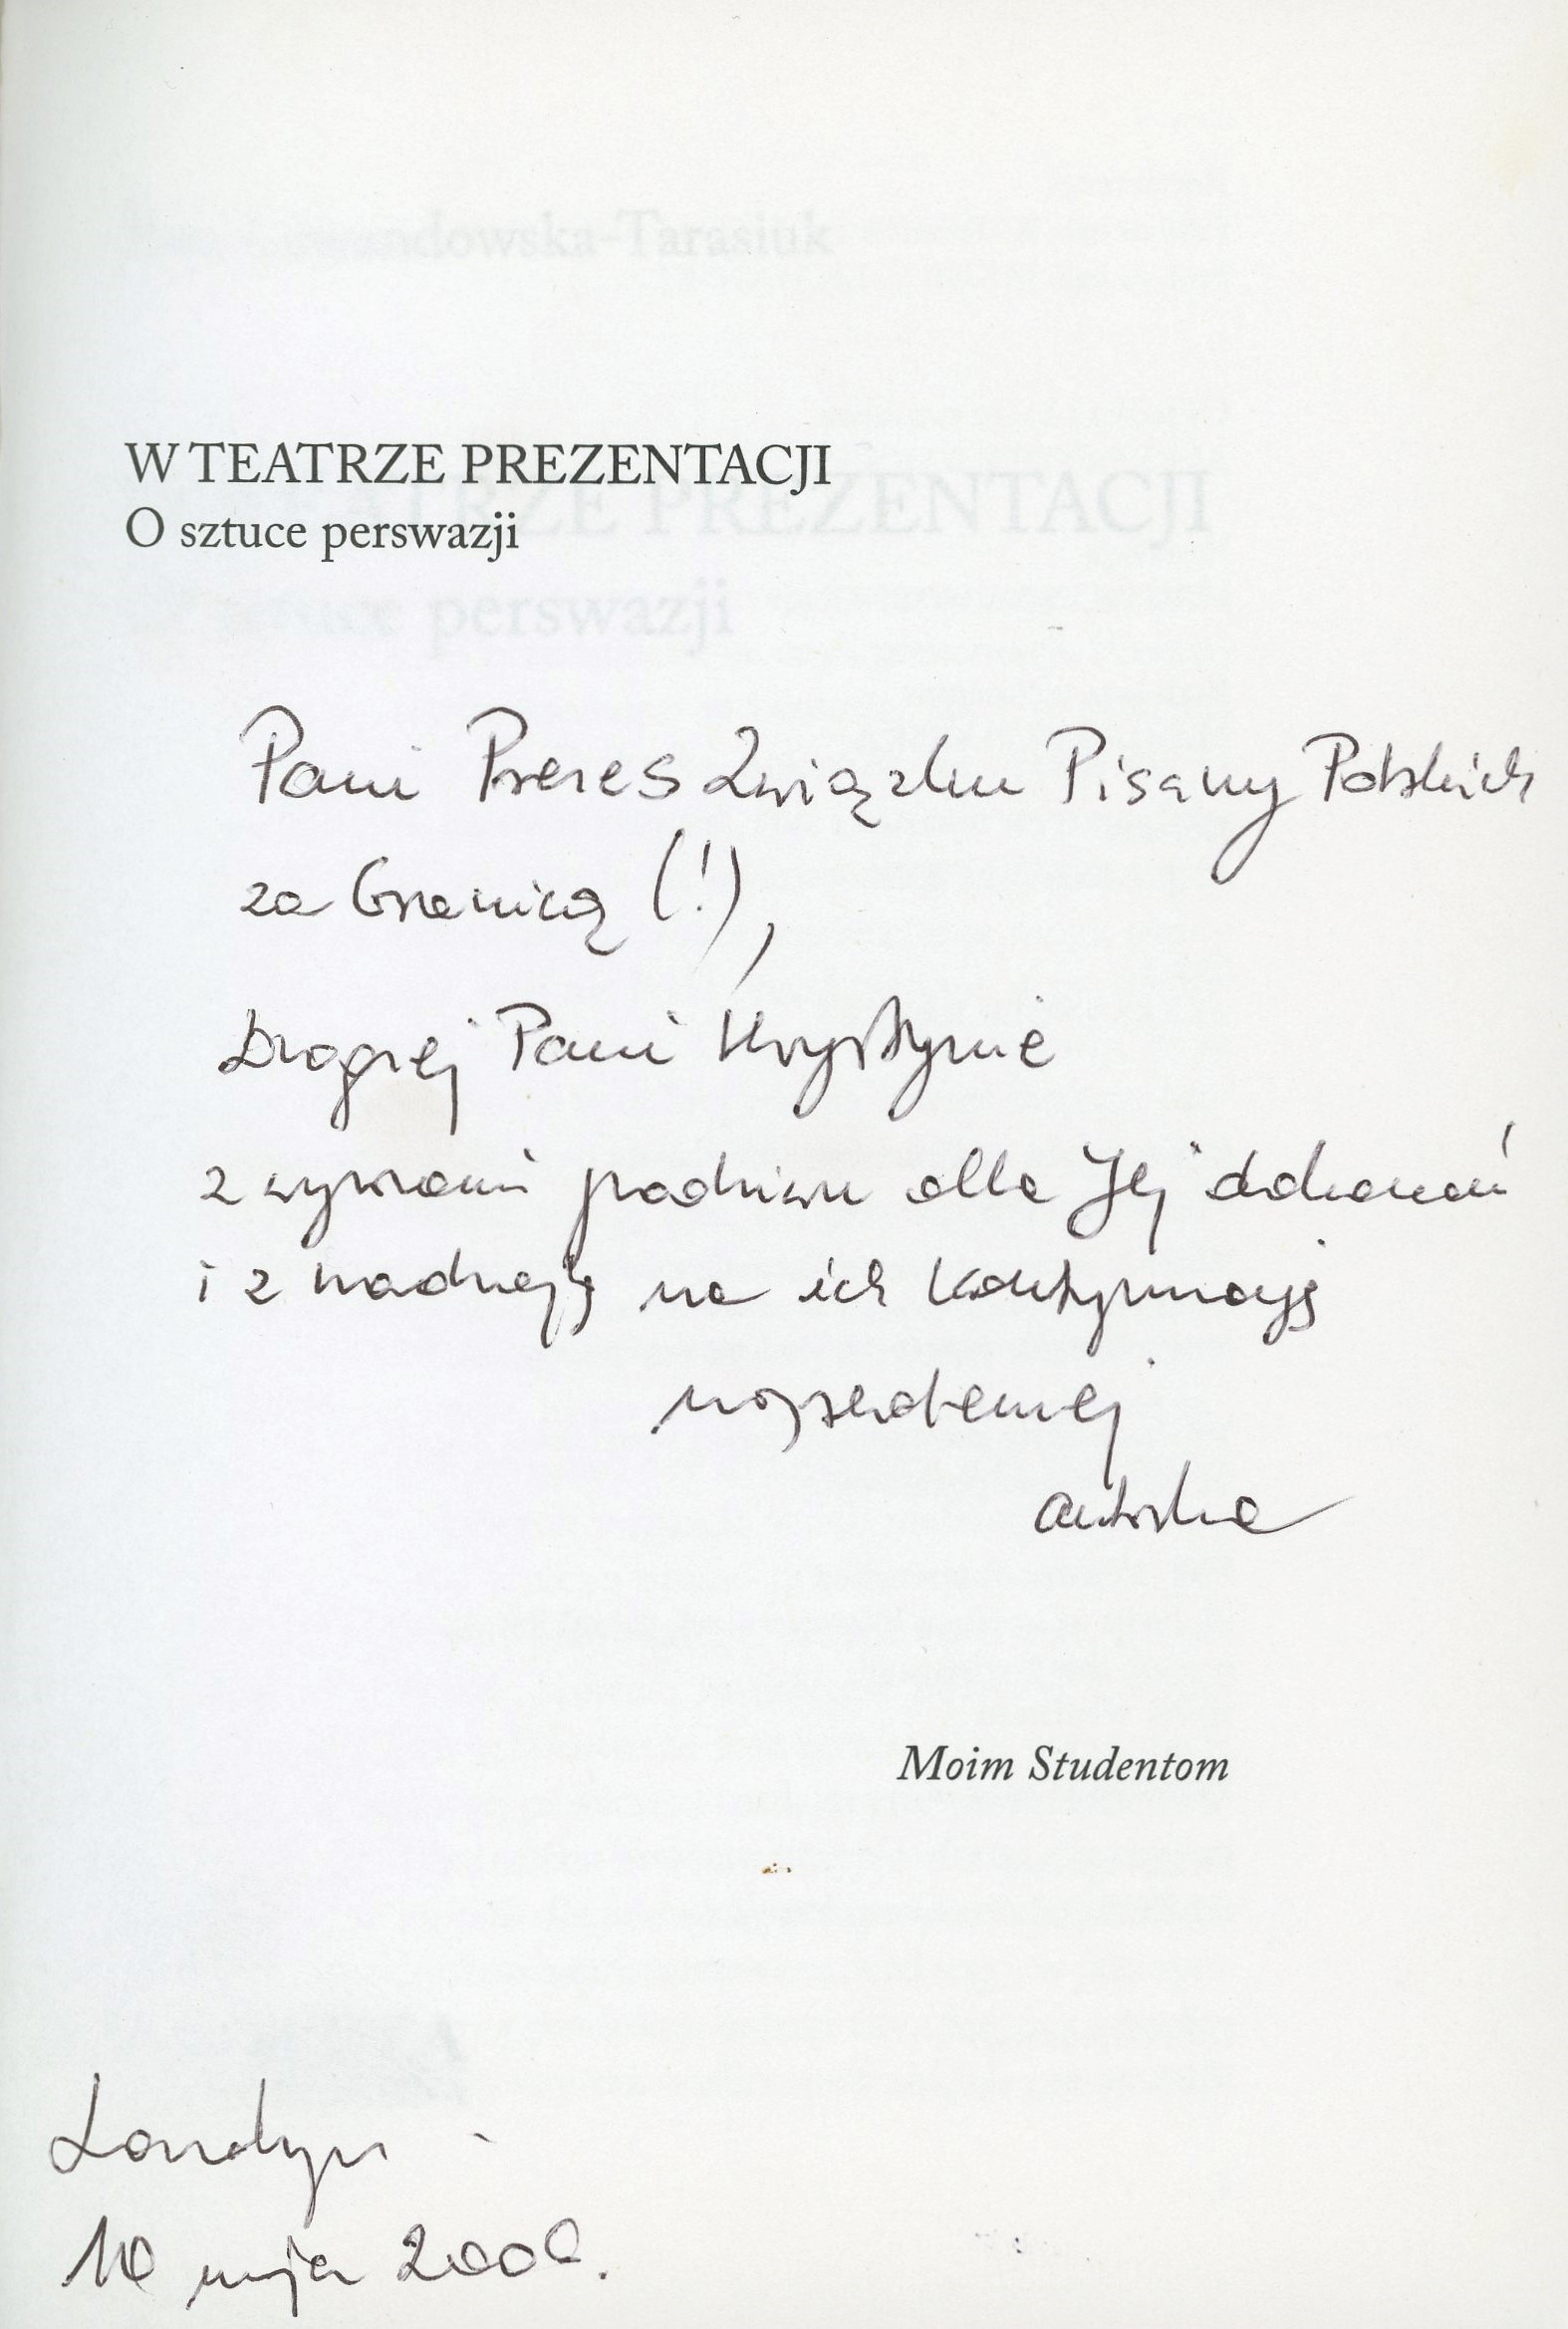 W TEATRZE PREZENTACJI
O sztuce perswazji
Pani Prezes Związku Pisarzy Polskich
za Granicą (!),
Drogiej Pani Krystynie
z wyrazami podziwu dla Jej dokonań
i z nadzieją na ich kontynuację
najserdeczniej
autorka
Moim Studentom
Londyn
10 maja 2000.